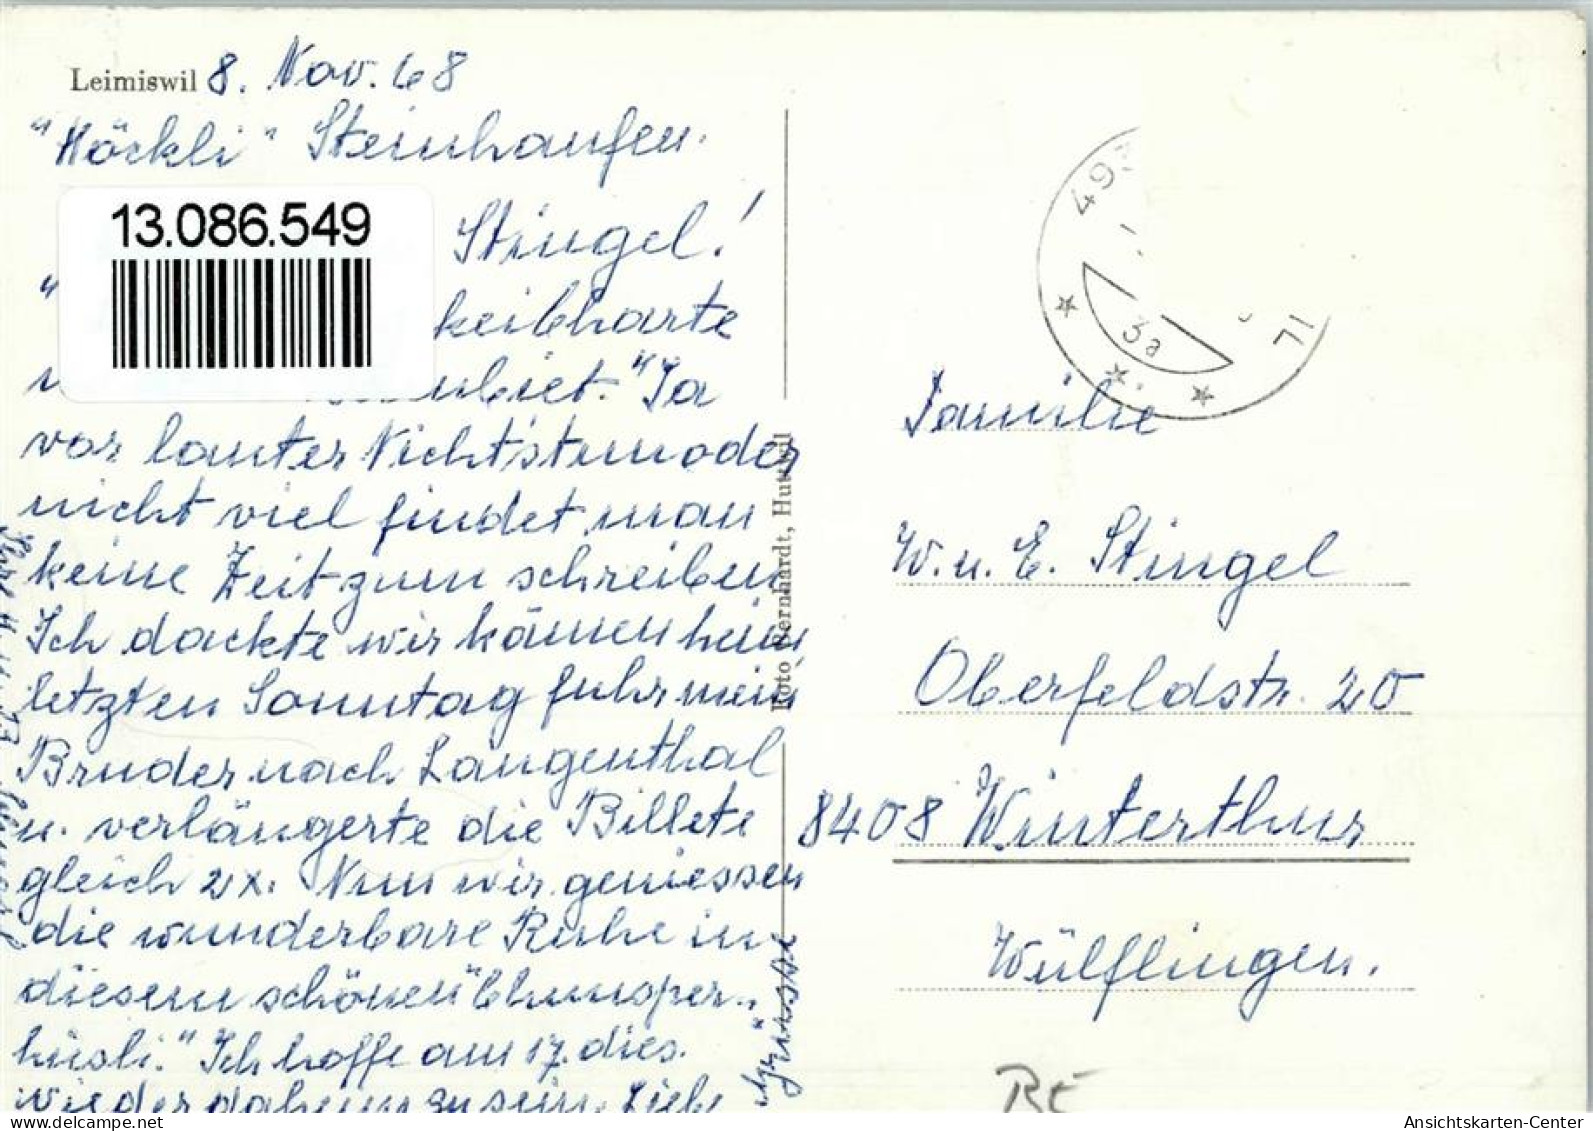 Leimiswil 8. Nov. 68
"Höckli" Steinhaufen.
13.086.549
Stingel!
"
keibharte
nbiet." Ja
vor lauter Nichtstun oder
nicht viel findet man
keine Zeit zum schreiben
Ich dackte wir können heim
letzten Sonntag fuhr mein
Bruder nach Langenthal
u. verlängerte die Billete
gleich 2x. Nun wir geniessen
die wunderbare Ruhe in
diesem schönen
hüsli." Ich hoffe am 17. dies.
wieder daheim zu sein. Liebe
Grüsse
Foto Bernhardt, Huttwil
493
3a
IL
Familie
W. u. E. Stingel
Oberfeldstr. 20
8408 Winterthur
Wülflingen.
BE
Ansichtskarten-Center